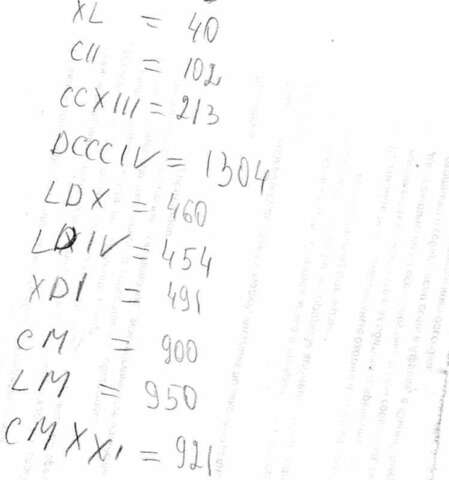 XL = 40
CII = 102
CCXIII = 213
DCCCIV = 1304
LDX = 460
LDIV = 454
XDI = 491
CM = 900
LM = 950
CMXXI = 921